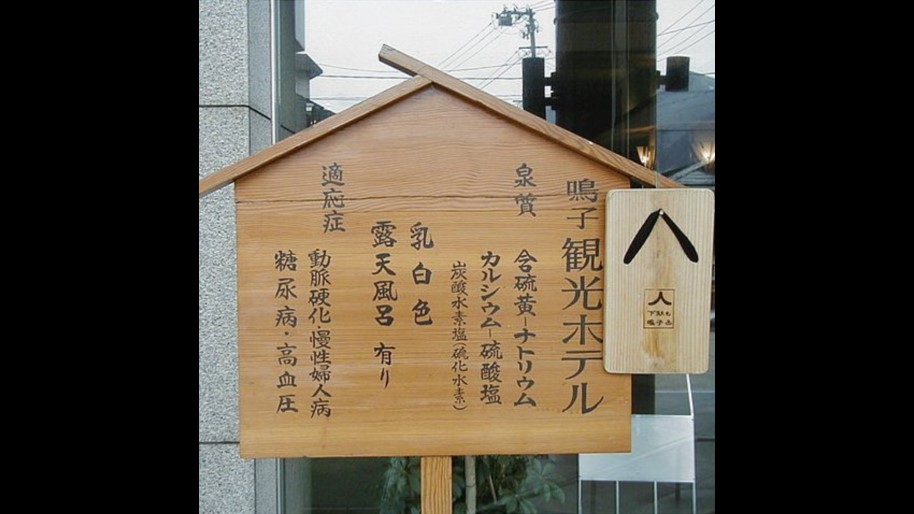 鳴子観光ホテル
泉質
含硫黄ーナトリウム
カルシウムー硫酸塩
炭酸水素塩(硫化水素)
乳白色
露天風呂 有り
適応症
動脈硬化・慢性婦人病
糖尿病・高血圧
下駄も
鳴子点